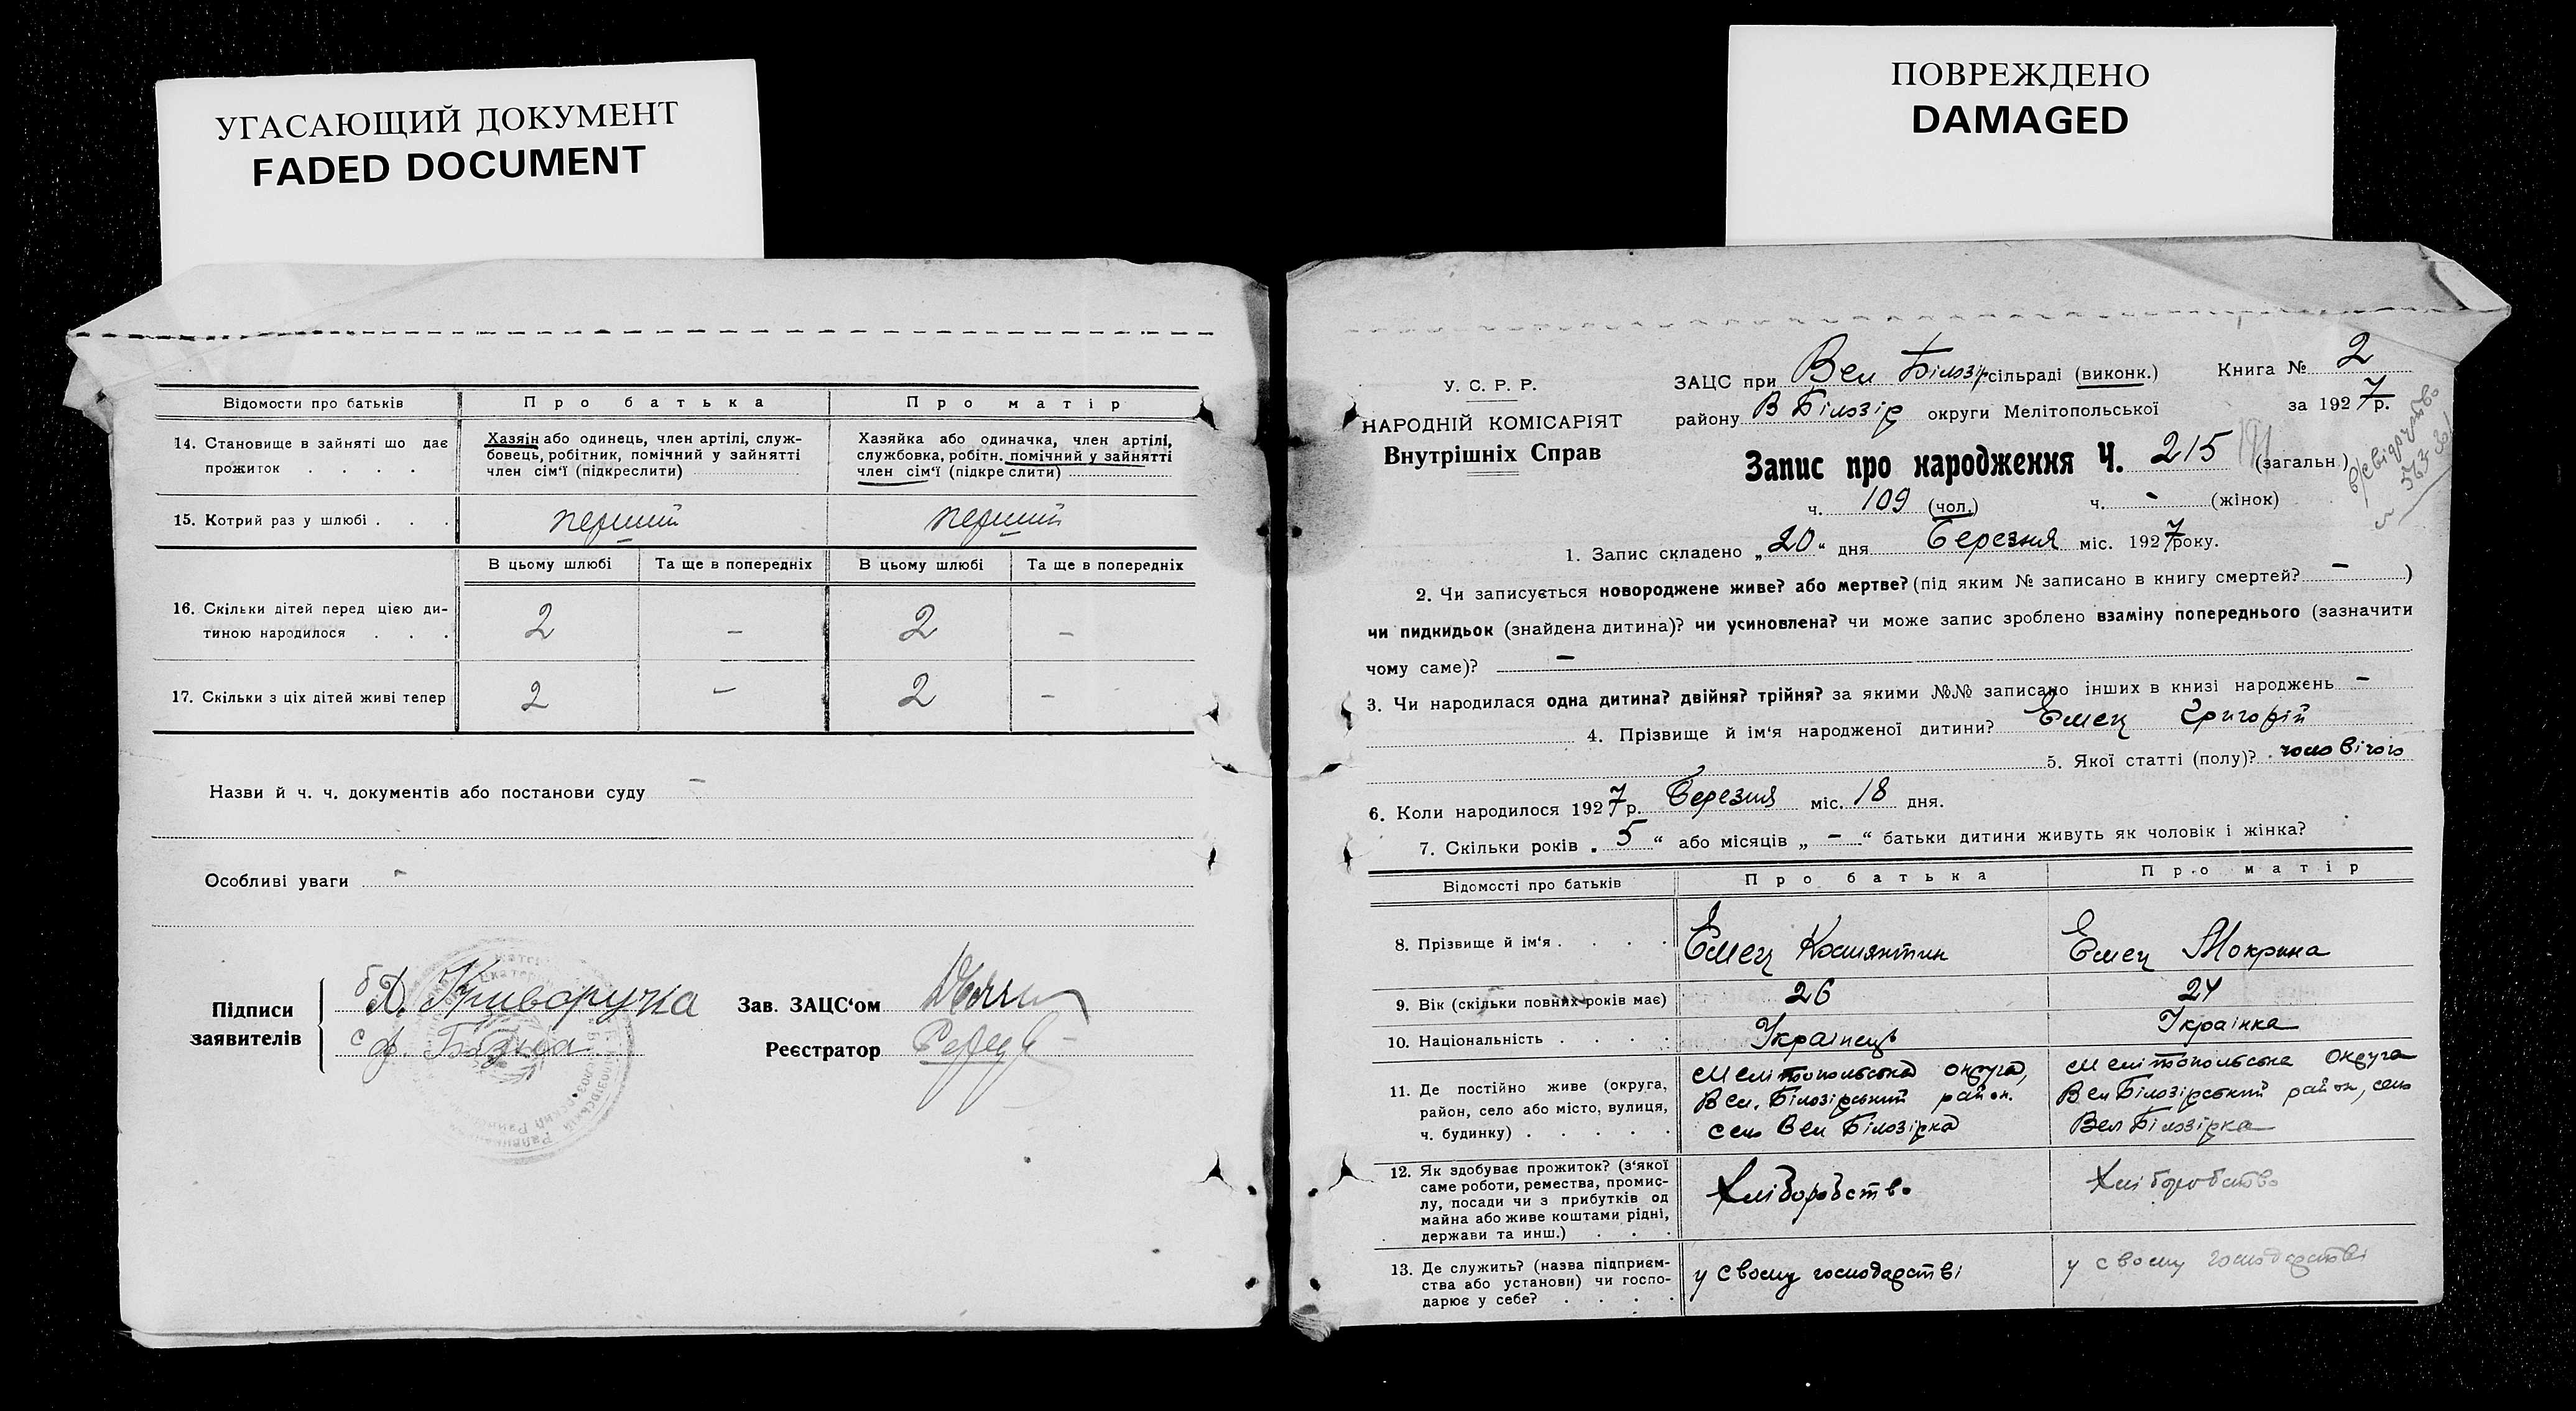 УГАСАЮЩИЙ ДОКУМЕНТ
FADED DOCUMENT
Відомости про батьків
Про батька
Про матір
14. Становище в зайняті що дає
прожиток . . . .
Хазяін або одинець, член артілі, служ-
бовець, робітник, помічний у зайнятті
член сім'ї (підкреслити)
Хазяйка або одиначка, член артілі,
службовка, робітн. помічний у зайнятті
член сім'ї (підкреслити)
15. Котрий раз у шлюбі . . .
перший
перший
В цьому шлюбі
Та ще в попередніх
В цьому шлюбі
Та ще в попередніх
16. Скільки дітей перед цією ди-
тиною народилося . . .
2
-
2
-
17. Скільки з ціх дітей живі тепер
2
-
2
-
Назви й ч. ч. документів або постанови суду -
Особливі уваги -
Підписи
заявителів
Д. Криворучка
Зав. ЗАЦС'ом
Реєстратор
ПОВРЕЖДЕНО
DAMAGED
У. С. Р. Р.
НАРОДНІЙ КОМІСАРІЯТ
Внутрішніх Справ
ЗАЦС при Вел Білозір сільраді (виконк.) Книга № 2
району В Білозір округи Мелітопольської за 1927 р.
Запис про народження Ч. 215 (загальн.)
ч. 109 (чол.) ч. - (жінок)
1. Запис складено „20“ дня Березня міс. 1927 року.
2. Чи записується новороджене живе? або мертве? (під яким № записано в книгу смертей? - )
чи пидкидьок (знайдена дитина)? чи усиновлена? чи може запис зроблено взаміну попереднього (зазначити
чому саме)? -
3. Чи народилася одна дитина? двійня? трійня? за якими №№ записано інших в книзі народжень -
4. Прізвище й ім'я народженої дитини? Емец Григорій
5. Якої статті (полу)? чоловічого
6. Коли народилося 1927 р. Березня міс. 18 дня.
7. Скільки років „ 5 “ або місяців „ - “ батьки дитини живуть як чоловік і жінка?
Відомості про батьків
Про батька
Про матір
8. Прізвище й ім'я . . . .
Емец Костянтин
Емец Мокрина
9. Вік (скільки повних років має)
26
24
10. Національність . . . .
Українець
Українка
11. Де постійно живе (округа,
район, село або місто, вулиця,
ч. будинку) . . . . .
Мелітопольська округа,
Вел. Білозірський район.
село Вел Білозірка
Мелітопольська округа
Вел Білозірський район, село
Вел Білозірка
12. Як здобуває прожиток? (з'якої
саме роботи, ремества, промис-
лу, посади чи з прибутків од
майна або живе коштами рідні,
держави та инш.) . . .
Хліборобство
Хліборобство
13. Де служить? (назва підприєм-
ства або установи) чи госпо-
дарює у себе? . . . .
у своему господарстві
у своему господарстві